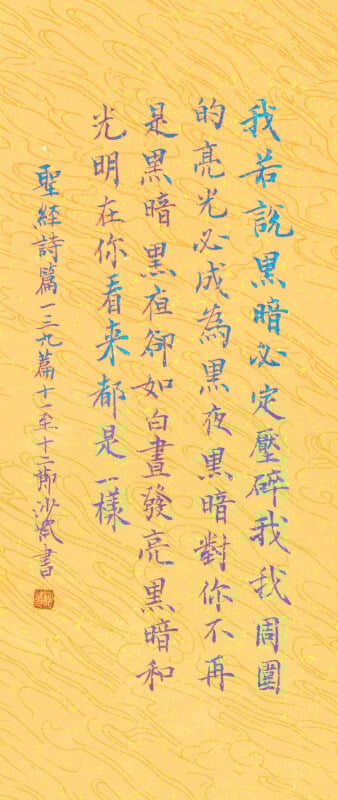 我若說黑暗必定壓碎我我周圍
的亮光必成為黑夜黑暗對你不再
是黑暗黑夜卻如白晝發亮黑暗和
光明在你看来都是一樣
聖經詩篇一三九篇十一至十二節沙崑書